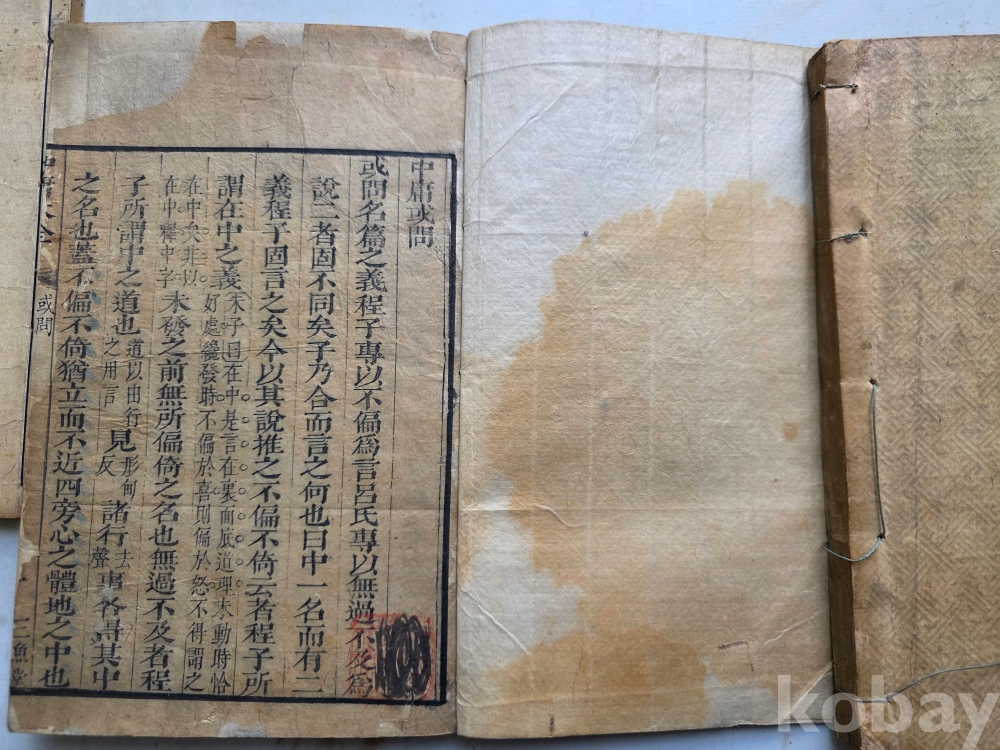 中庸或問
或問名篇之義程子專以不偏為言呂氏專以無過不及為
說二者固不同矣子乃合而言之何也曰中一名而有二
義程子固言之矣今以其說推之不偏不倚云者程子所
謂在中之義朱子曰在中是言在裏面底道理未動時恰
好處纔發時不偏於喜則偏於怒不得謂之
在中矣非以
在中釋中字
未發之前無所偏倚之名也無過不及者程
子所謂中之道也道以由行
之用言
見形甸
反
諸行去
聲
事各得其中
之名也蓋不偏不倚猶立而不近四旁心之體地之中也
或問
三魚堂
kobay